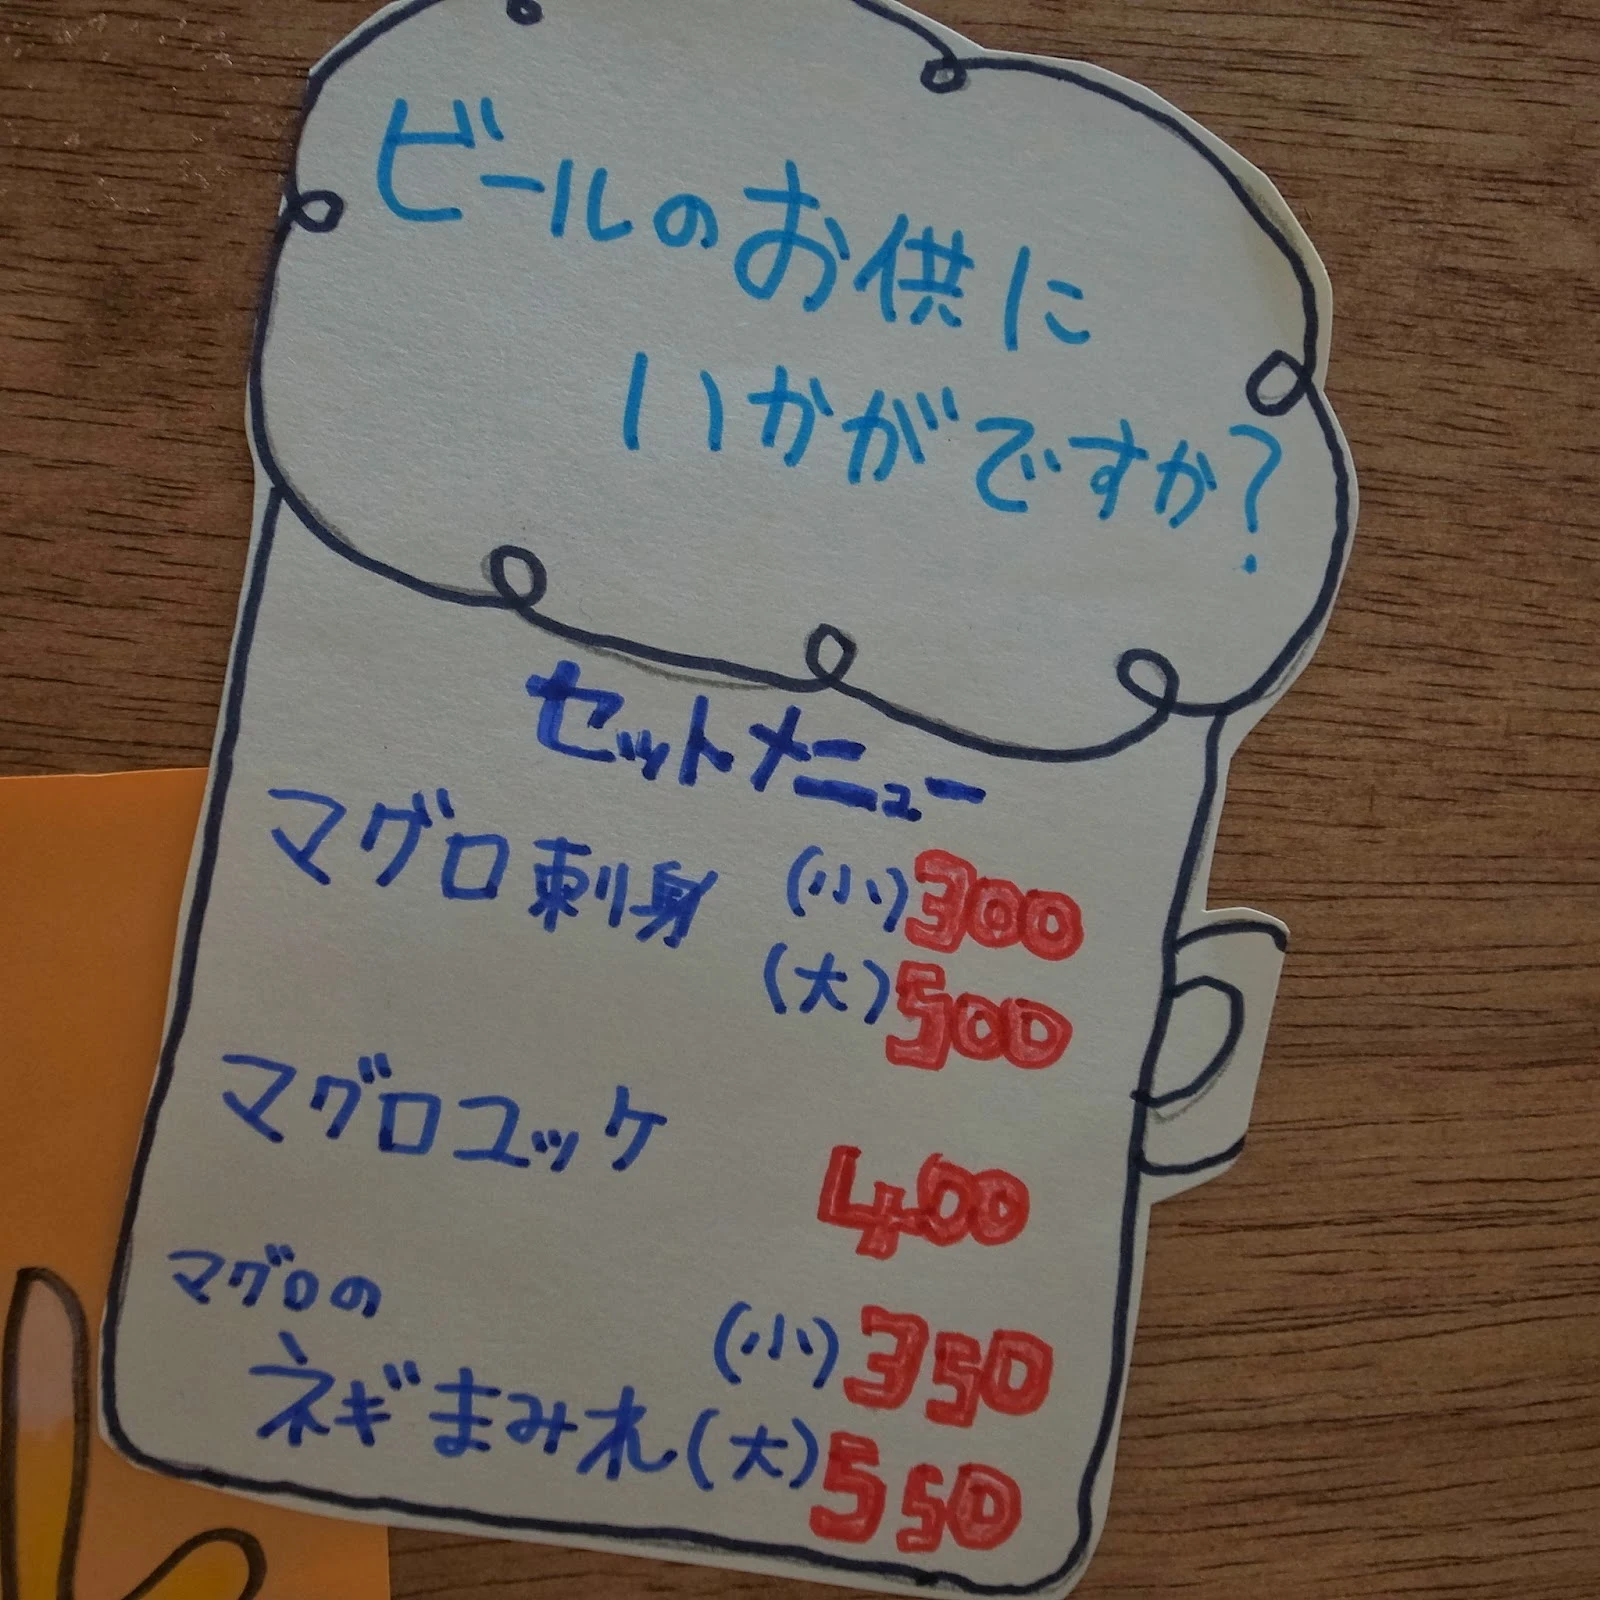 ビールのお供に
いかがですか?
セットメニュー
マグロ刺身 (小)300
(大)500
マグロユッケ
400
マグロの
(小)350
ネギまみれ(大)550